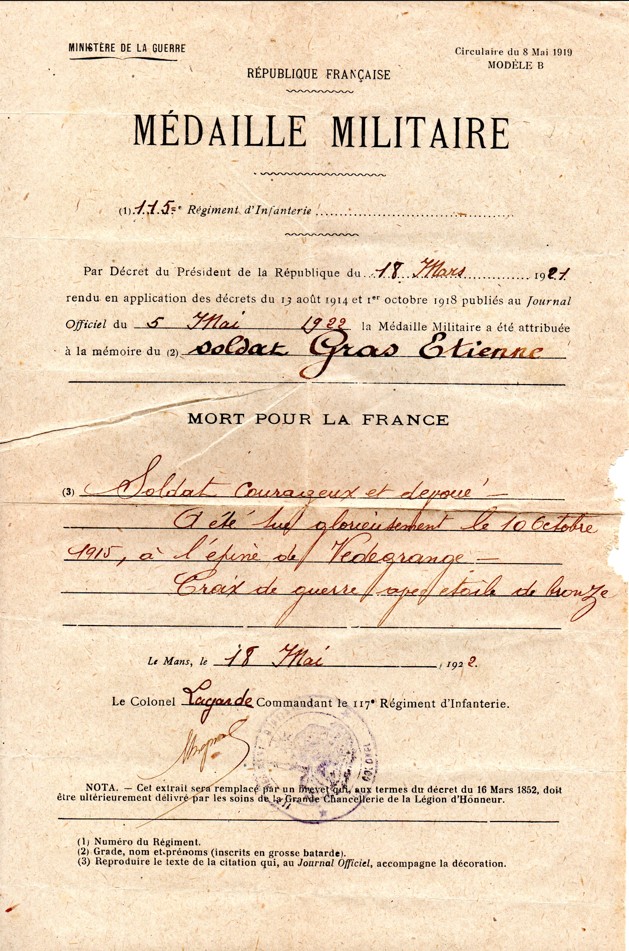 MINISTÈRE DE LA GUERRE
Circulaire du 8 Mai 1919
MODÈLE B
RÉPUBLIQUE FRANÇAISE
MÉDAILLE MILITAIRE
(1) 115e Régiment d'Infanterie
Par Décret du Président de la République du 18 Mars 1921
rendu en application des décrets du 13 août 1914 et 1er octobre 1918 publiés au Journal
Officiel du 5 Mai 1922 la Médaille Militaire a été attribuée
à la mémoire du (2) soldat Gras Etienne
MORT POUR LA FRANCE
(3) Soldat courageux et dévoué –
A été tué glorieusement le 10 Octobre
1915, à l'épine de Vedegrange –
Croix de guerre avec etoile de bronze
Le Mans, le 18 Mai, 1922.
Le Colonel Lagarde Commandant le 117e Régiment d'Infanterie.
NOTA. — Cet extrait sera remplacé par un brevet qui, aux termes du décret du 16 Mars 1852, doit
être ultérieurement délivré par les soins de la Grande Chancellerie de la Légion d'Honneur.
(1) Numéro du Régiment.
(2) Grade, nom et prénoms (inscrits en grosse batarde).
(3) Reproduire le texte de la citation qui, au Journal Officiel, accompagne la décoration.